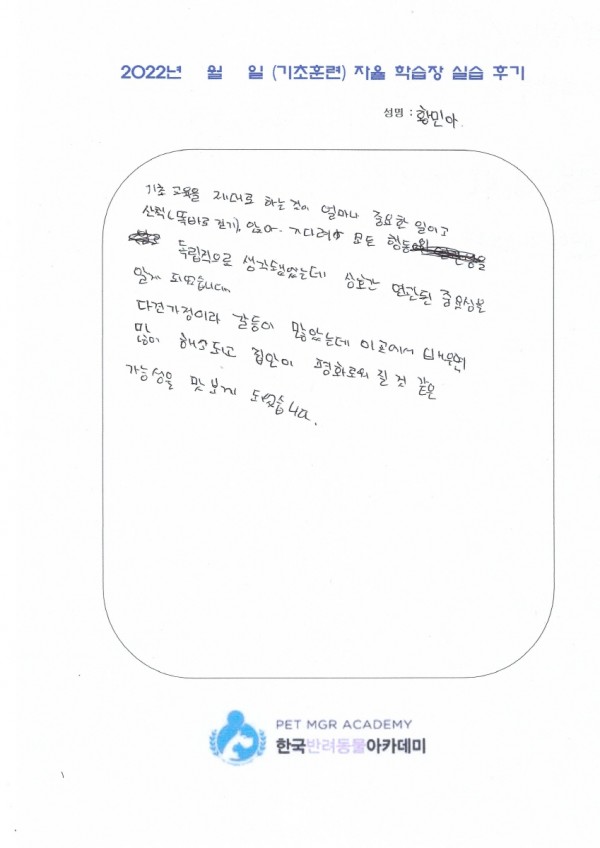 2022년 월 일 (기초훈련) 자율 학습장 실습 후기
성명 : 황민아
기초 교육을 제대로 하는것이 얼마나 중요한 일이고
산책(똑바로 걷기), 앉아. 기다려 모든 행동
독립적으로 생각했었는데 상호간 연관된 중요성을
알게 되었습니다.
다견가정이라 갈등이 많았는데 이곳에서 배우면
많이 해소되고 집안이 평화로워 질 것 같은
가능성을 맛보게 되었습니다.
PET MGR ACADEMY
한국반려동물아카데미